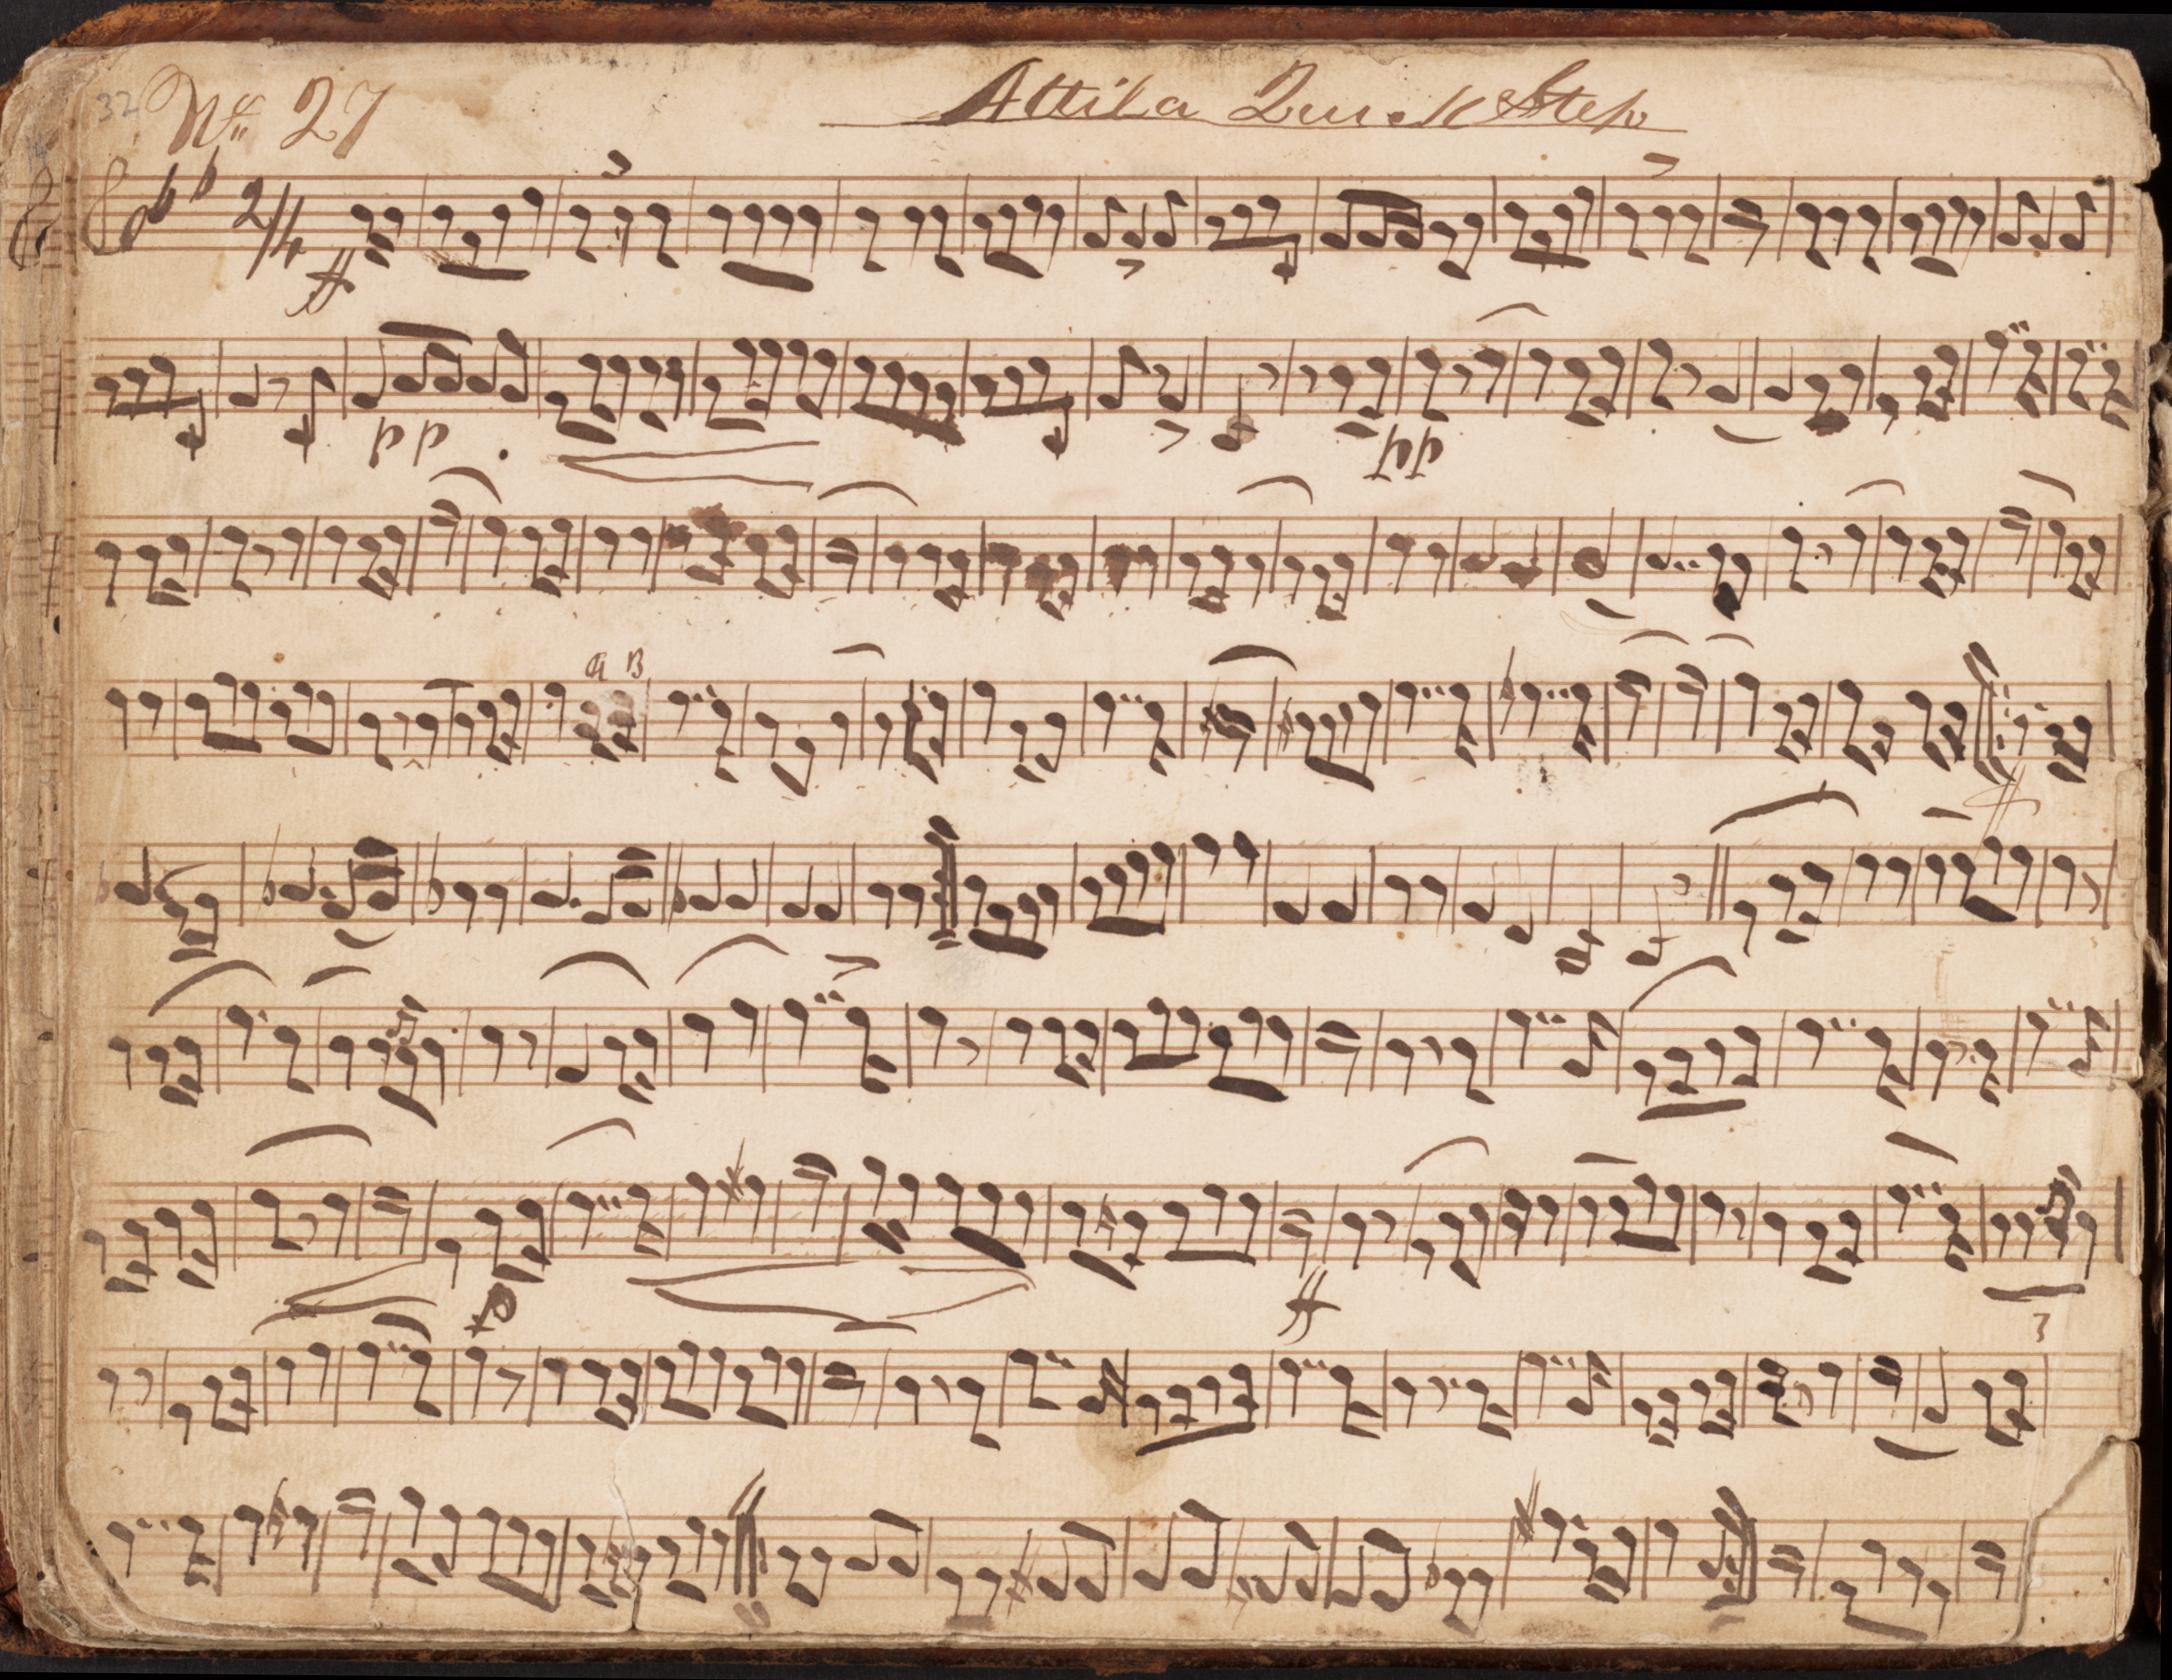 32 No 27 Attila Quick Step
2/4
ff
pp pp
a B
ff
p ff 3